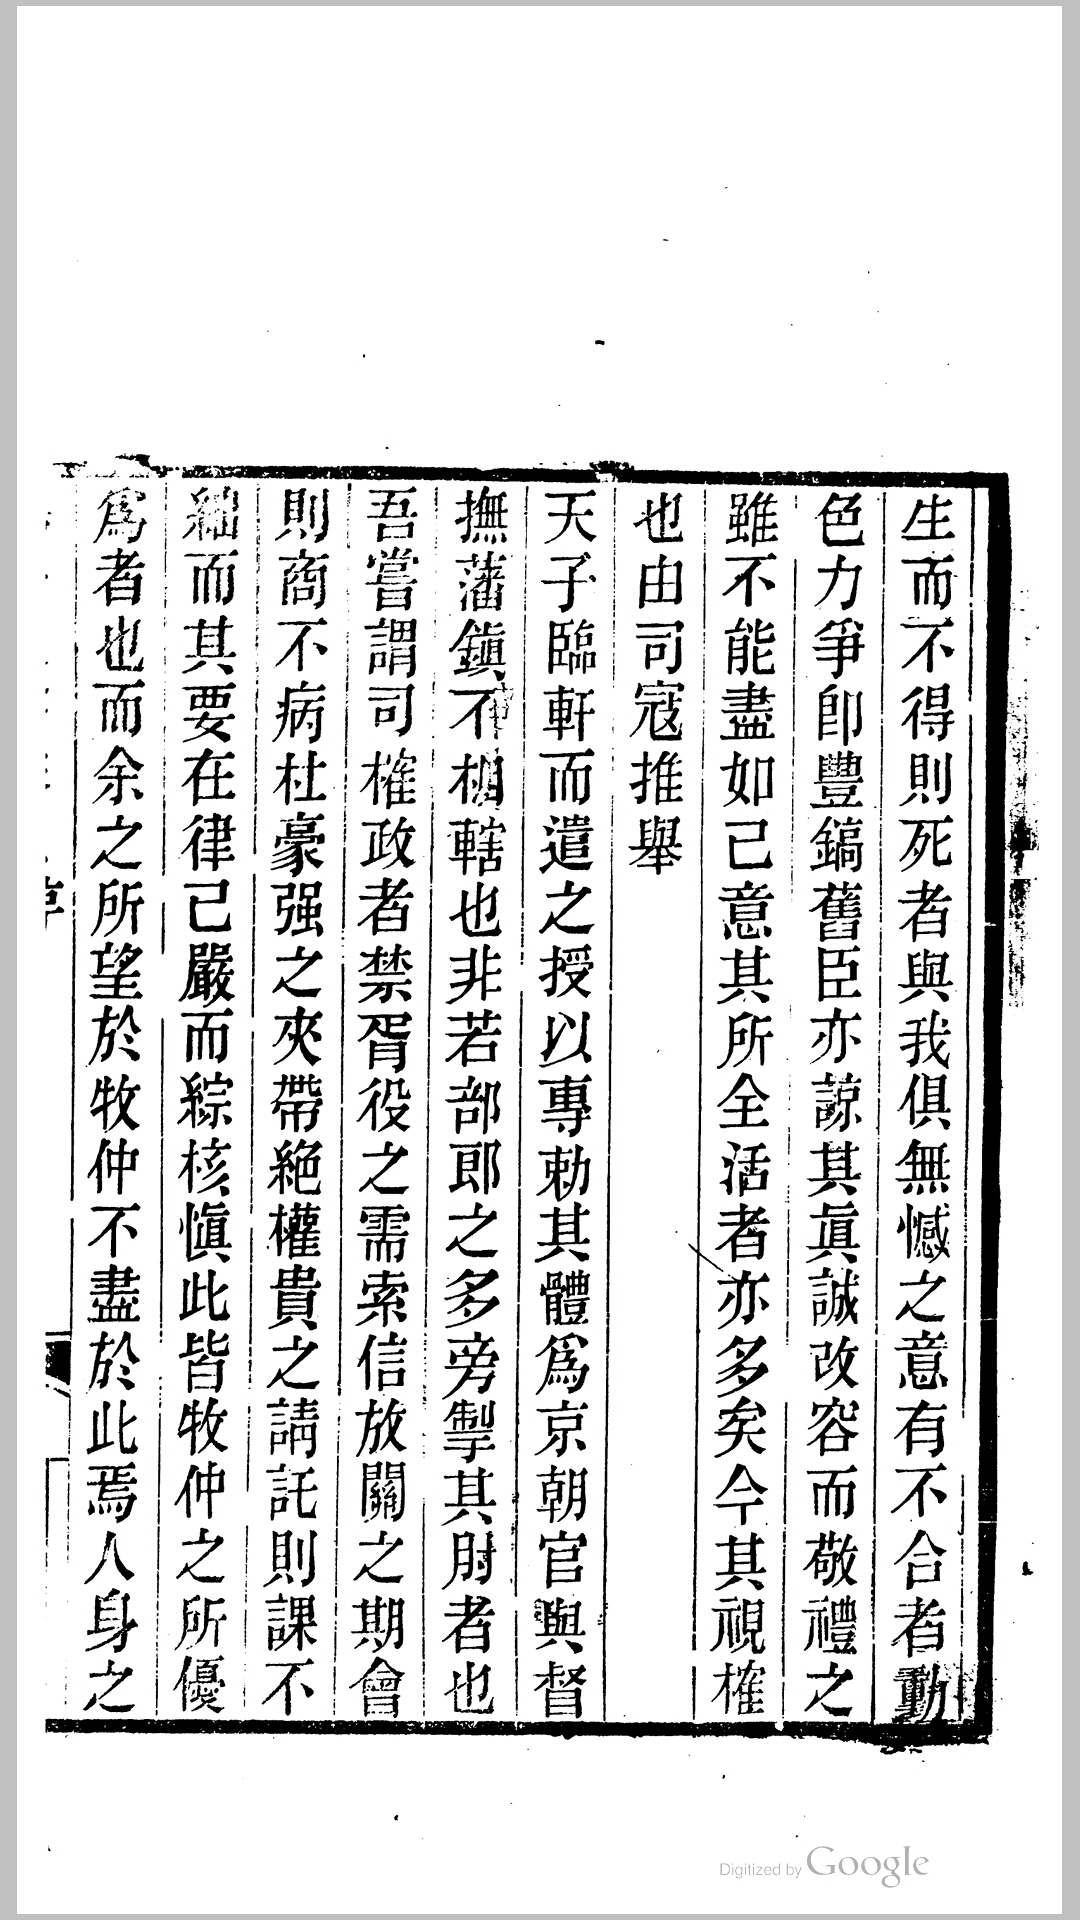 生而不得則死者與我俱無憾之意有不合者動
色力爭卽豐鎬舊臣亦諒其眞誠改容而敬禮之
雖不能盡如己意其所全活者亦多矣今其視榷
也由司寇推舉
天子臨軒而遣之授以專勅其體爲京朝官與督
撫藩鎮不相轄也非若部郎之多旁掣其肘者也
吾嘗謂司榷政者禁胥役之需索信放關之期會
則商不病杜豪强之夾帶絕權貴之請託則課不
絀而其要在律己嚴而綜核愼此皆牧仲之所優
爲者也而余之所望於牧仲不盡於此焉人身之
Digitized by Google